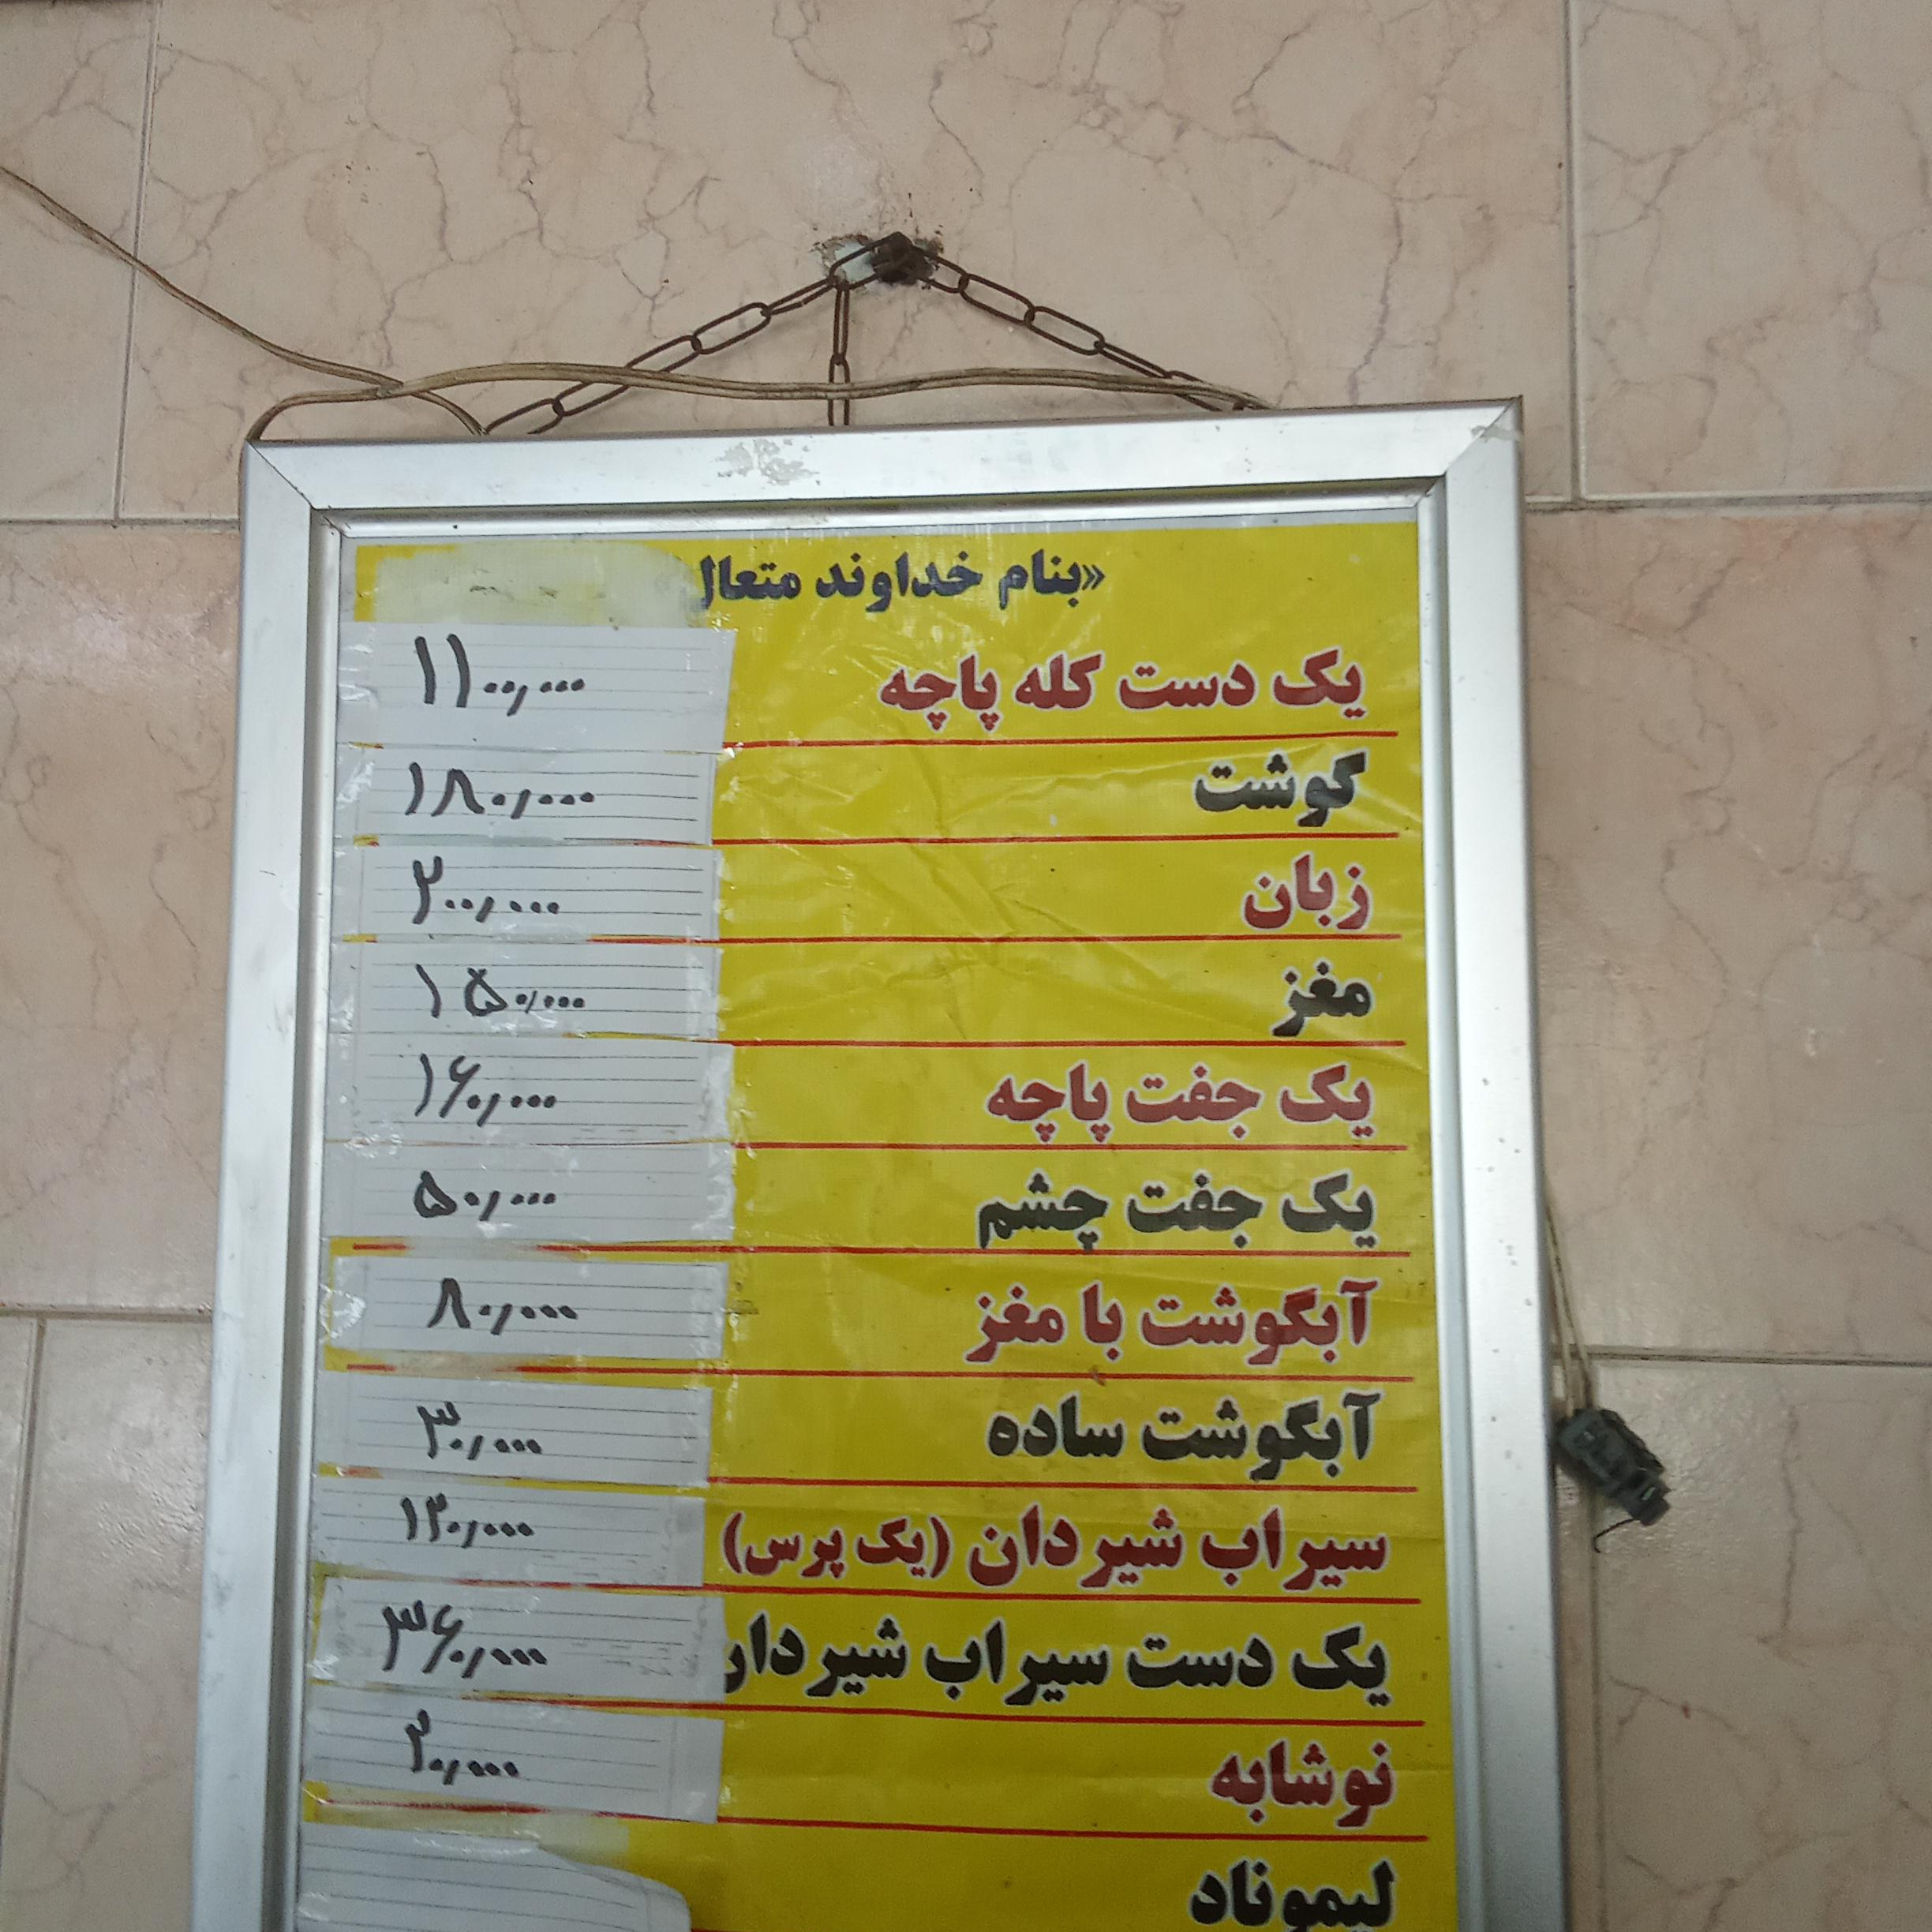 «بنام خداوند متعال
یک دست کله پاچه ۱۱۰۰,۰۰۰
گوشت ۱۸۰,۰۰۰
زبان ۲۰۰,۰۰۰
مغز ۱۵۰,۰۰۰
یک جفت پاچه ۱۶۰,۰۰۰
یک جفت چشم ۵۰,۰۰۰
آبگوشت با مغز ۸۰,۰۰۰
آبگوشت ساده ۳۰,۰۰۰
سیراب شیردان (یک پرس) ۱۲۰,۰۰۰
یک دست سیراب شیردان ۳۶۰,۰۰۰
نوشابه ۲۰,۰۰۰
لیموناد